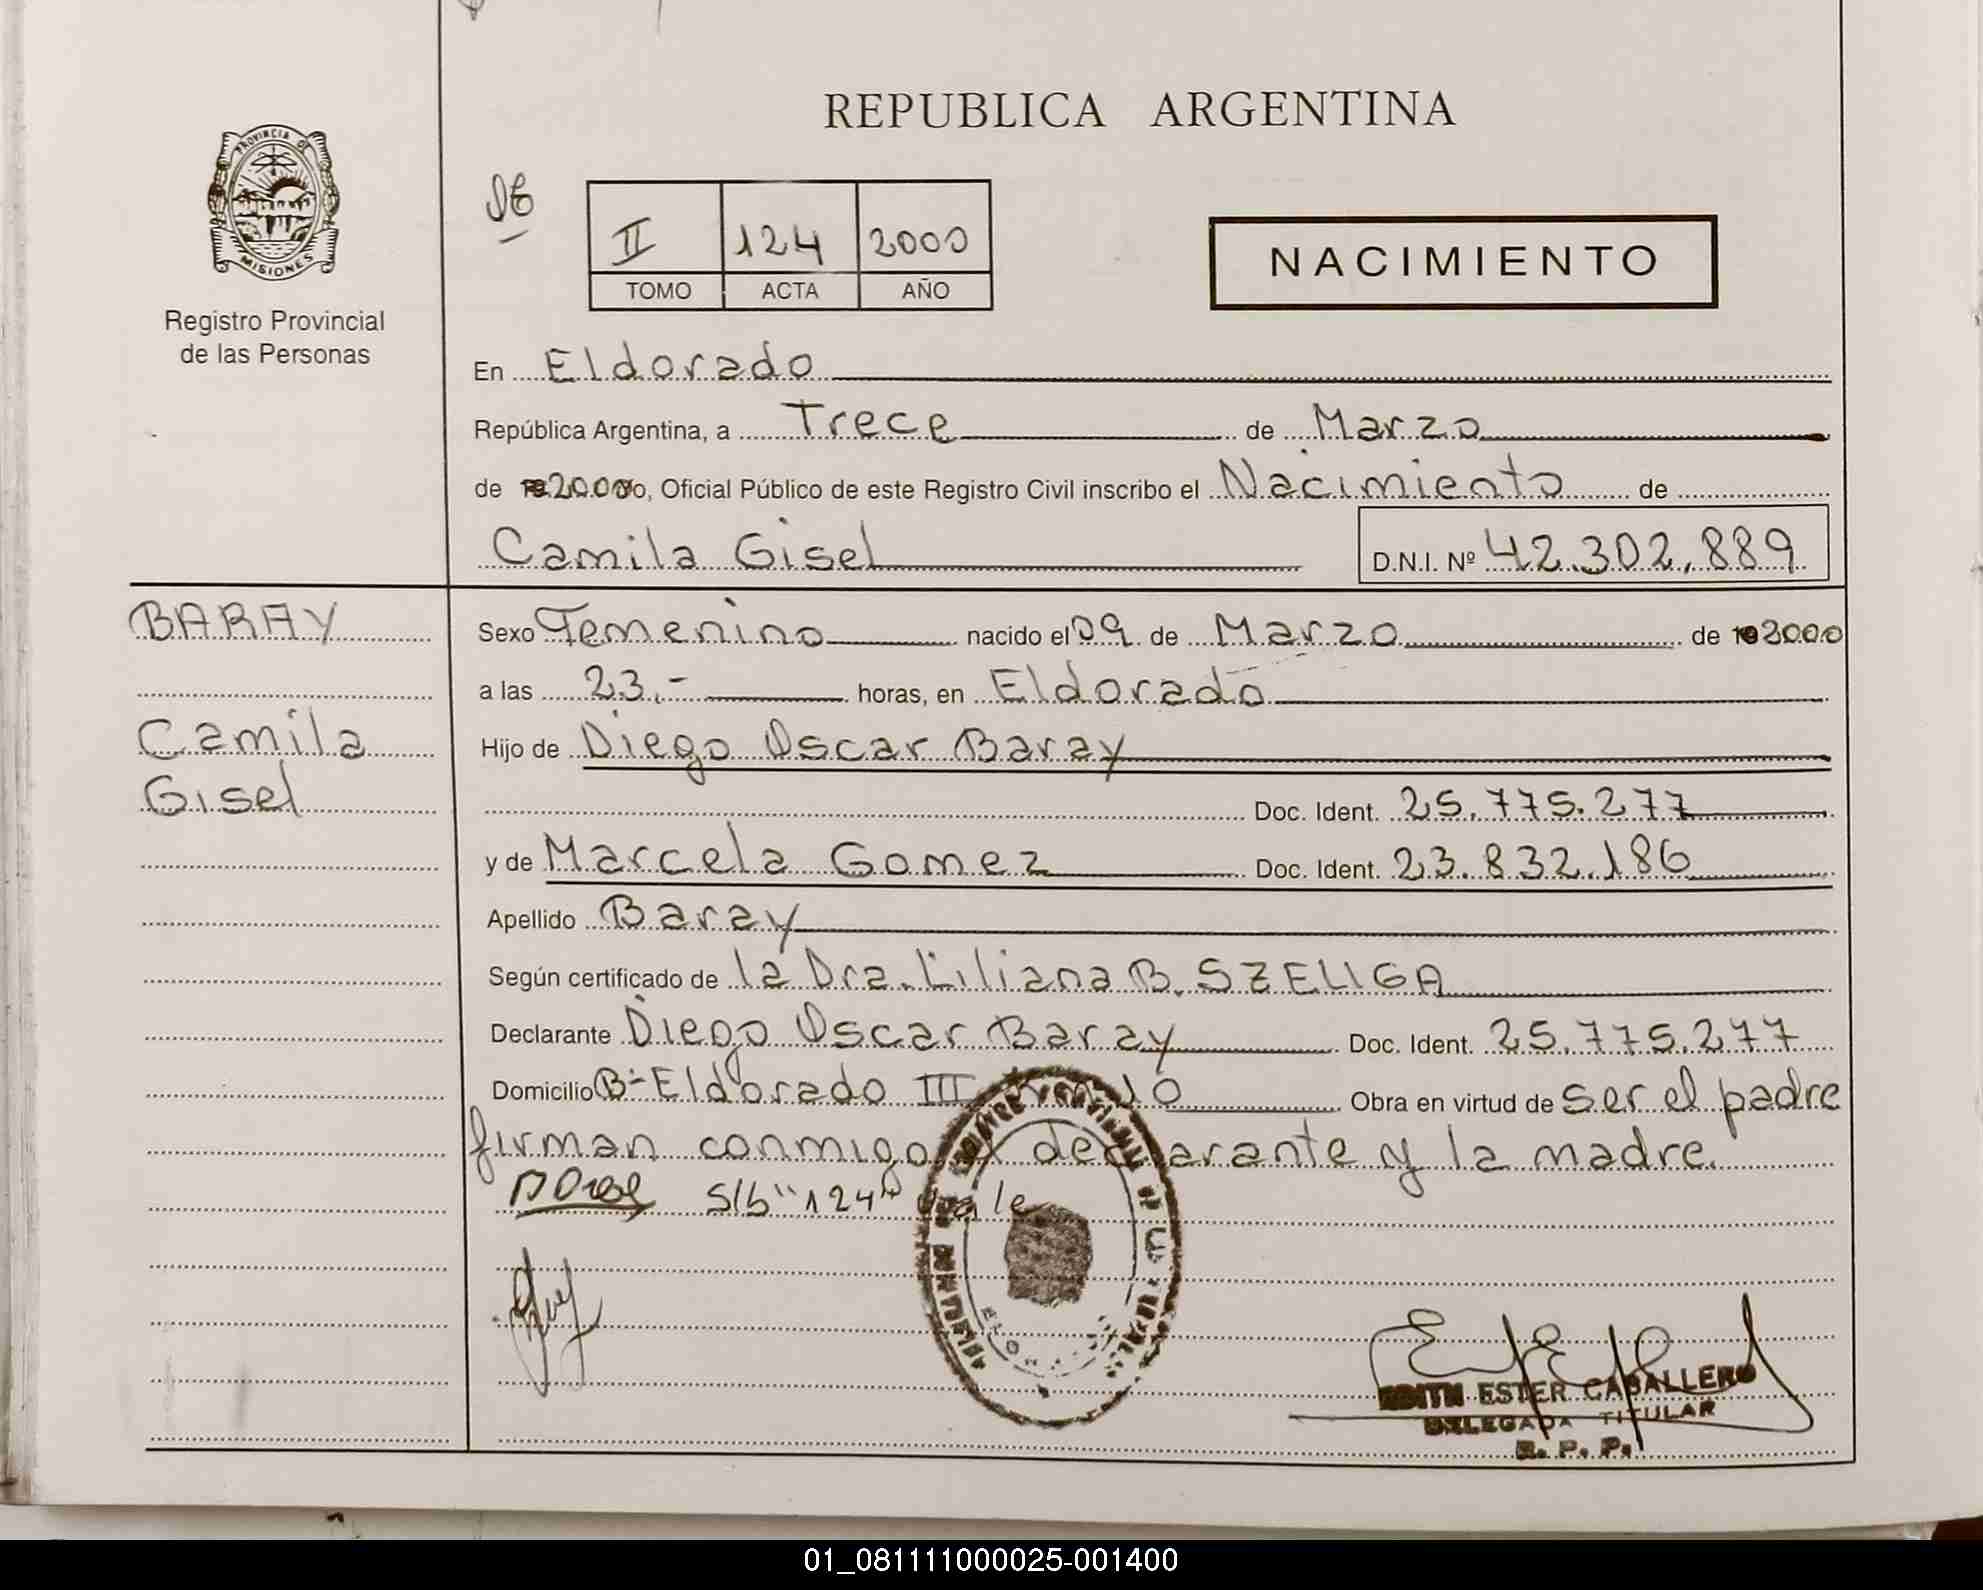 REPUBLICA ARGENTINA
PROVINCIA DE
MISIONES
Registro Provincial
de las Personas
II 124 2000
TOMO ACTA AÑO
NACIMIENTO
En Eldorado
República Argentina, a Trece de Marzo
de 2000 yo, Oficial Público de este Registro Civil inscribo el Nacimiento de
Camila Gisel D.N.I. Nº 42.302.889
BARAY
Camila
Gisel
Sexo Femenino nacido el 09 de Marzo de 2000
a las 23.- horas, en Eldorado
Hijo de Diego Oscar Baray
Doc. Ident. 25.775.277
y de Marcela Gomez Doc. Ident. 23.832.186
Apellido Baray
Según certificado de la Dra. Liliana B. SZELIGA
Declarante Diego Oscar Baray Doc. Ident. 25.775.277
Domicilio B- Eldorado III Km 10 Obra en virtud de ser el padre
firman conmigo el declarante y la madre.
S/b "124" vale
EDITH ESTER CABALLERO
DELEGADA TITULAR
R. P. P.
01_081111000025-001400